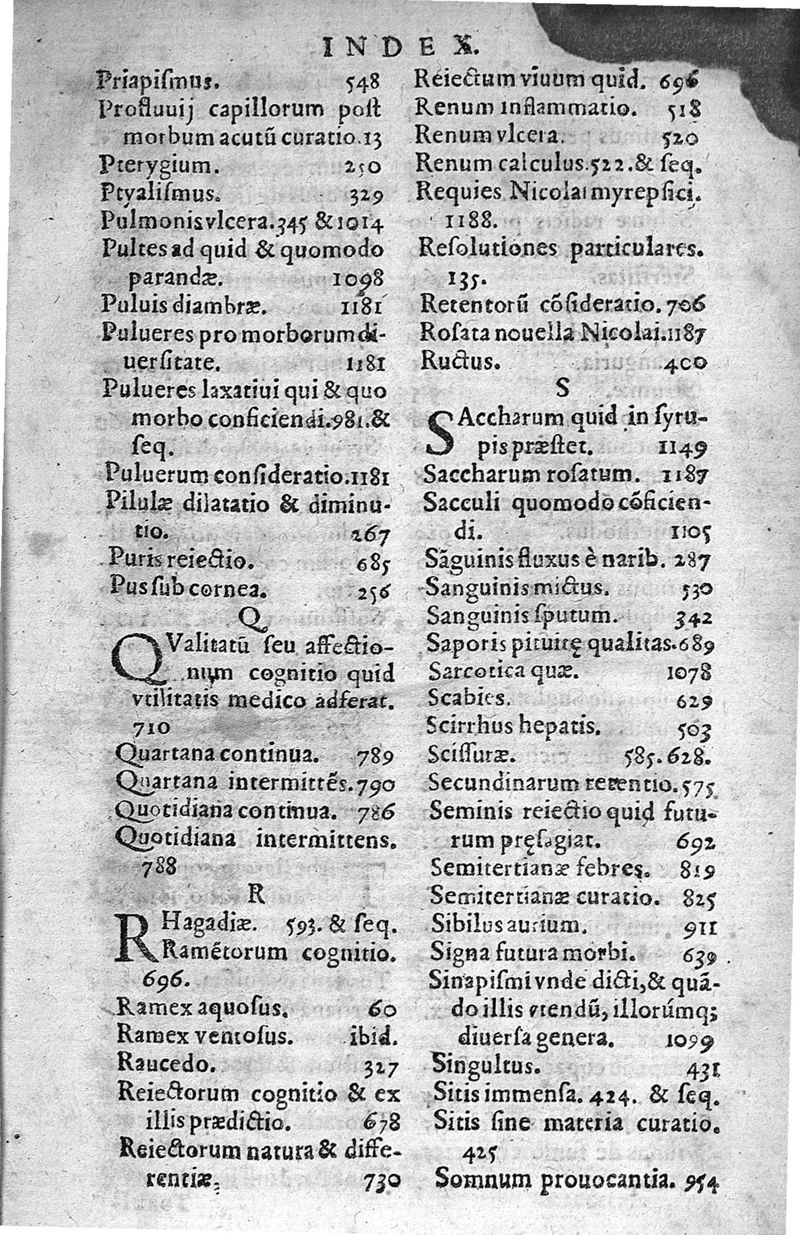 INDEX.
Priapiſmus. 548
Profluuij capillorum poſt
morbum acutū curatio.13
Pterygium. 250
Ptyaliſmus. 329
Pulmonis vlcera.345 & 1014
Pultes ad quid & quomodo
parandæ. 1098
Puluis diambræ. 1181
Pulueres pro morborum di-
uerſitate. 1181
Pulueres laxatiui qui & quo
morbo conficiendi.981.&
ſeq.
Puluerum conſideratio.1181
Pilulæ dilatatio & diminu-
tio. 267
Puris reiectio. 685
Pus ſub cornea. 256
Q
QValitatū ſeu affectio-
num cognitio quid
vtilitatis medico adferat.
710
Quartana continua. 789
Quartana intermittēs.790
Quotidiana continua. 786
Quotidiana intermittens.
788
R
RHagadiæ. 593. & ſeq.
Ramētorum cognitio.
696.
Ramex aquoſus. 60
Ramex ventoſus. ibid.
Raucedo. 327
Reiectorum cognitio & ex
illis prædictio. 678
Reiectorum natura & diffe-
rentiæ. 730
Reiectum viuum quid. 696
Renum inflammatio. 518
Renum vlcera. 520
Renum calculus.522.& ſeq.
Requies Nicolai myrepſici.
1188.
Reſolutiones particulares.
135.
Retentorū cōſideratio. 706
Roſata nouella Nicolai.1187
Ructus. 400
S
SAccharum quid in ſyru-
pis præſtet. 1149
Saccharum roſatum. 1187
Sacculi quomodo cōficien-
di. 1105
Sāguinis fluxus è narib. 287
Sanguinis mictus. 530
Sanguinis ſputum. 342
Saporis pituitę qualitas.689
Sarcotica quæ. 1078
Scabies. 629
Scirrhus hepatis. 503
Sciſſuræ. 585.628.
Secundinarum retentio.575
Seminis reiectio quid futu-
rum pręſagiat. 692
Semitertianæ febres. 819
Semitertianæ curatio. 825
Sibilus aurium. 911
Signa futura morbi. 639
Sinapiſmi vnde dicti,& quā-
do illis vtendū, illorúmq;
diuerſa genera. 1099
Singultus. 431
Sitis immenſa. 424. & ſeq.
Sitis ſine materia curatio.
425
Somnum prouocantia. 954